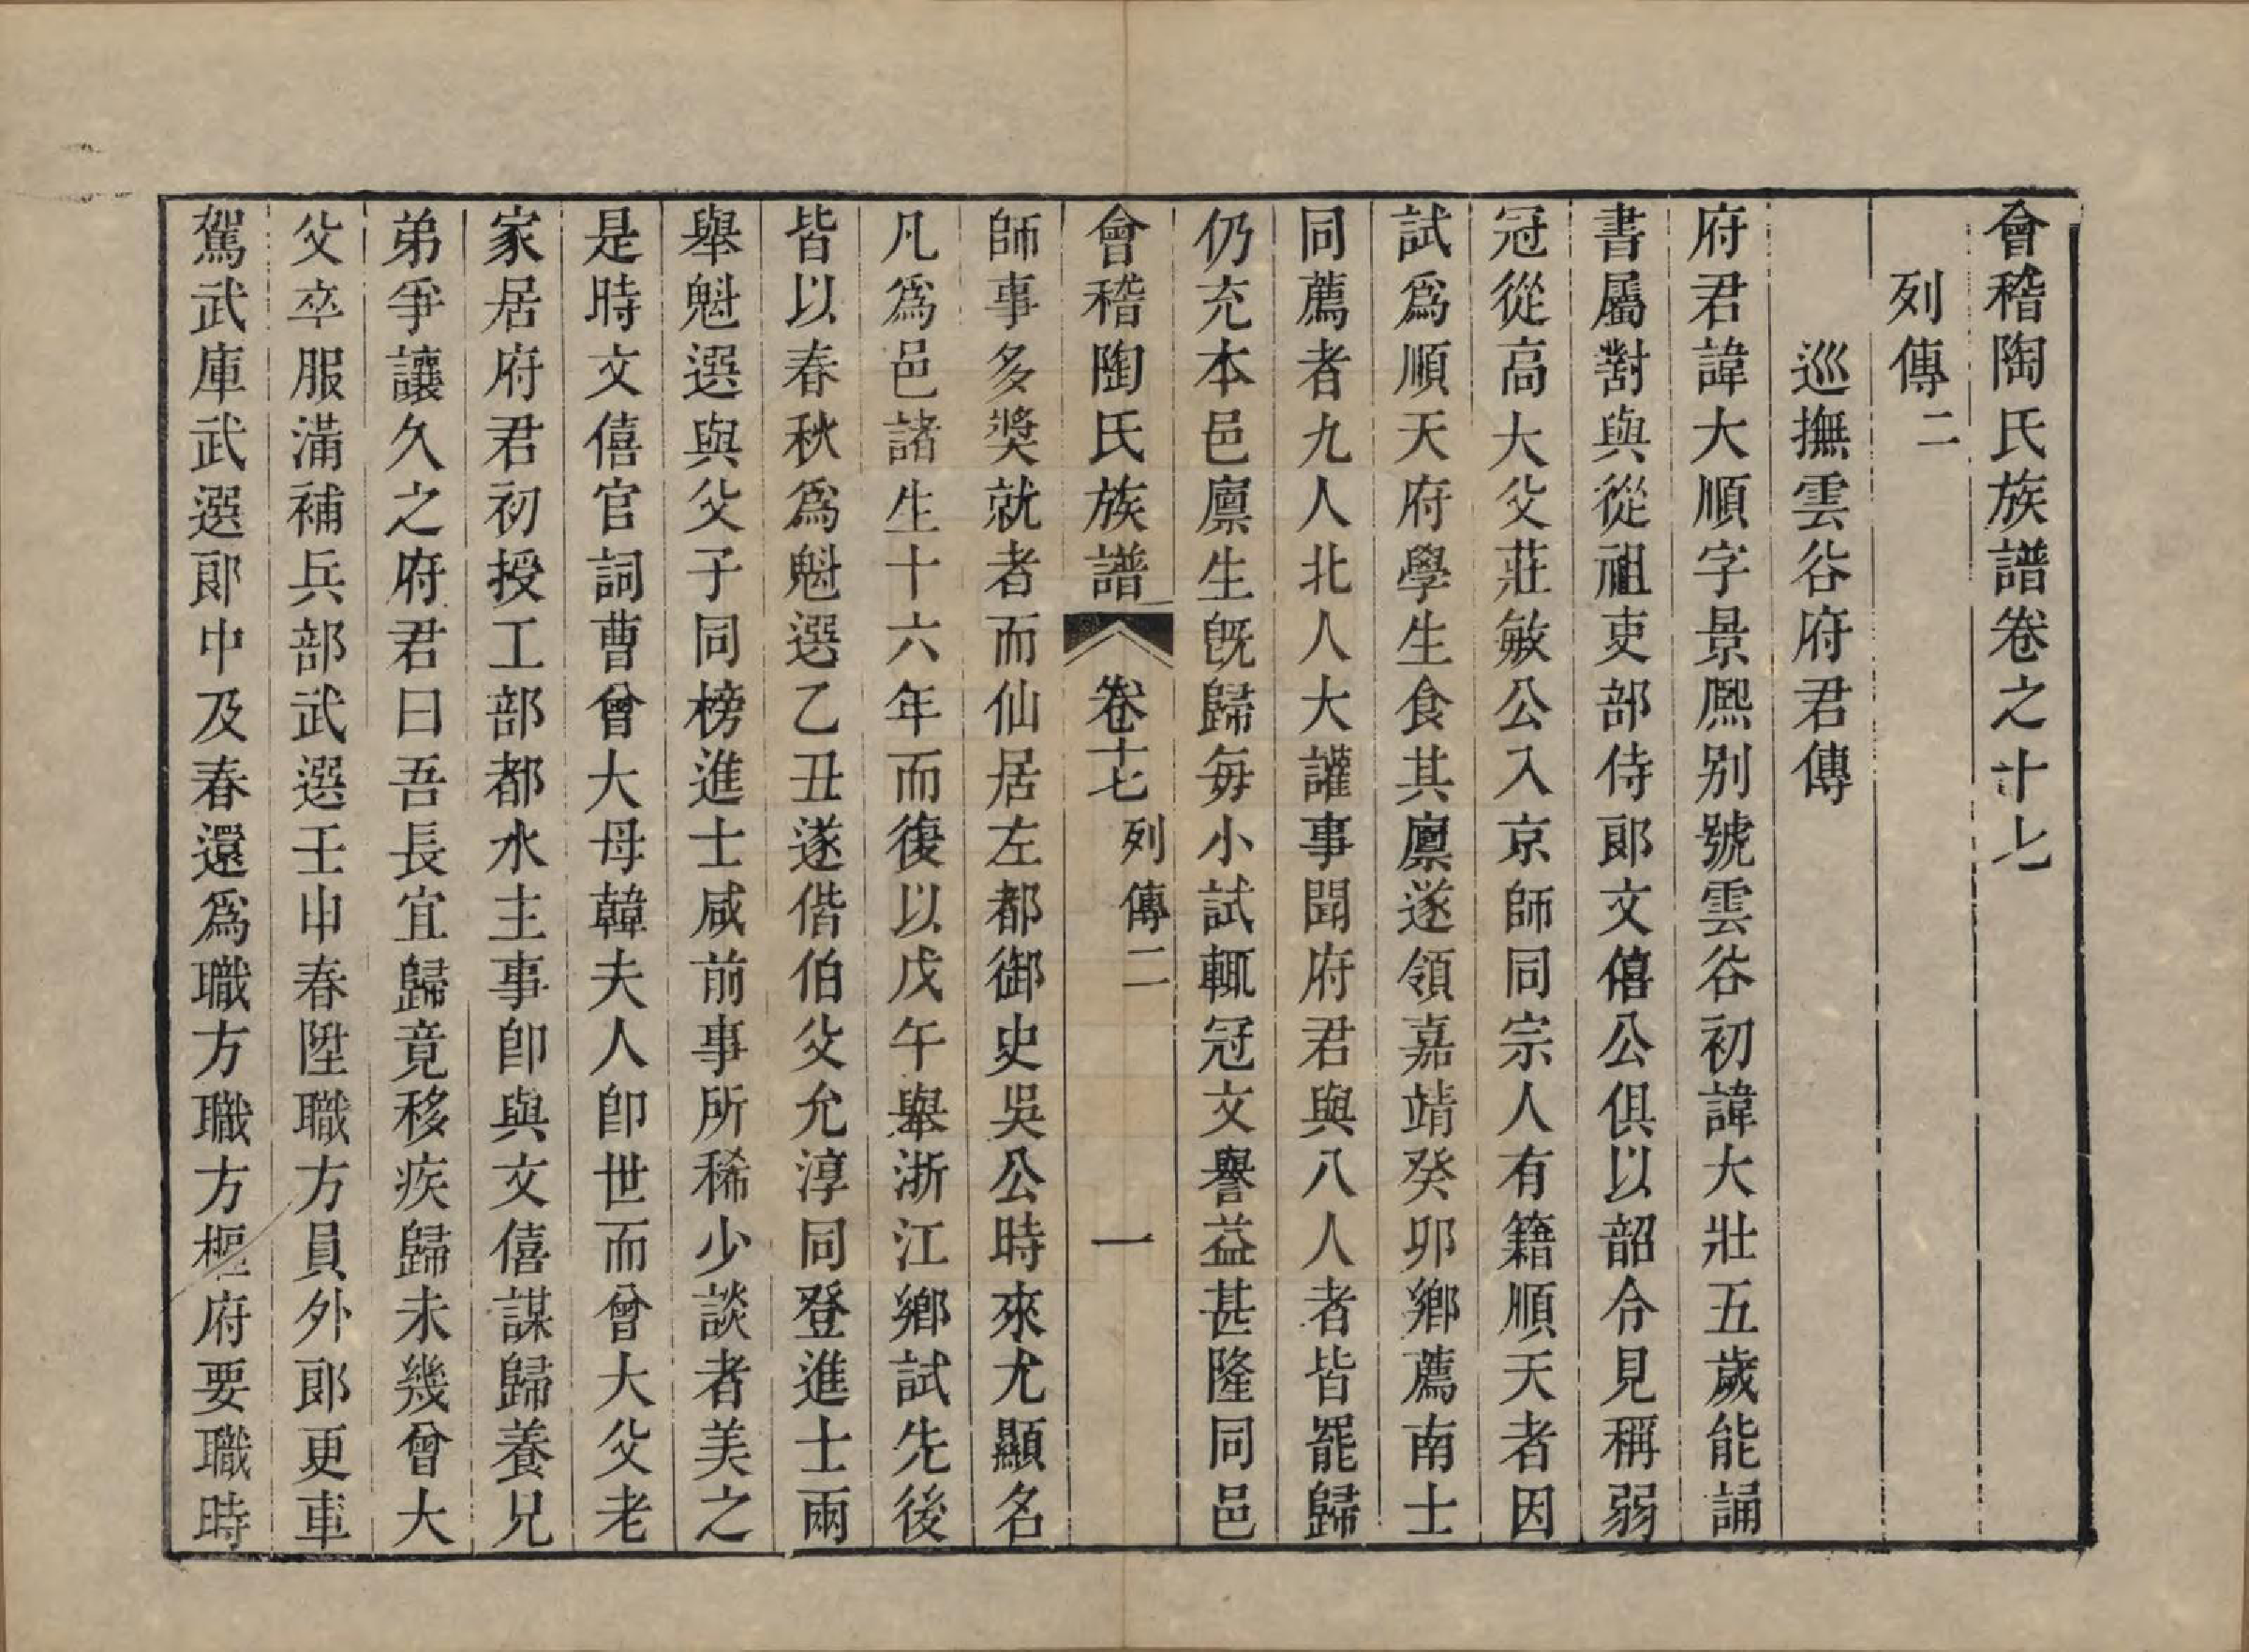 會稽陶氏族譜卷之十七
列傳二
巡撫雲谷府君傳
府君諱大順字景熈别號雲谷初諱大壯五歲能誦
書屬對與從祖吏部侍郎文僖公俱以韶令見稱弱
冠從高大父莊敏公入京師同宗人有籍順天者因
試爲順天府學生食其廩遂領嘉靖癸卯鄉薦南士
同薦者九人北人大讙事聞府君與八人者皆罷歸
仍充本邑廪生旣歸每小試輒冠文譽益甚隆同邑
會稽陶氏族譜 卷十七 列傳二 一
師事多獎就者而仙居左都御史吳公時來尤顯名
凡爲邑諸生十六年而復以戊午舉浙江鄉試先後
皆以春秋爲魁選乙丑遂偕伯父允淳同登進士兩
舉魁選與父子同榜進士咸前事所稀少談者美之
是時文僖官詞曹曾大母韓夫人卽世而曾大父老
家居府君初授工部都水主事卽與文僖謀歸養兄
弟爭讓久之府君曰吾長宜歸竟移疾歸未幾曾大
父卒服滿補兵部武選壬申春陞職方員外郎更車
駕武庫武選郎中及春還爲職方職方樞府要職時